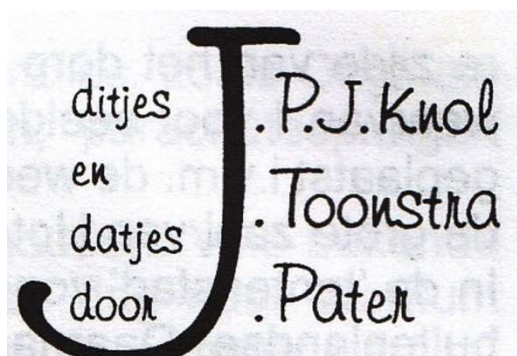 ditjes
en
datjes
door
J.P.J. Knol
J. Toonstra
J. Pater